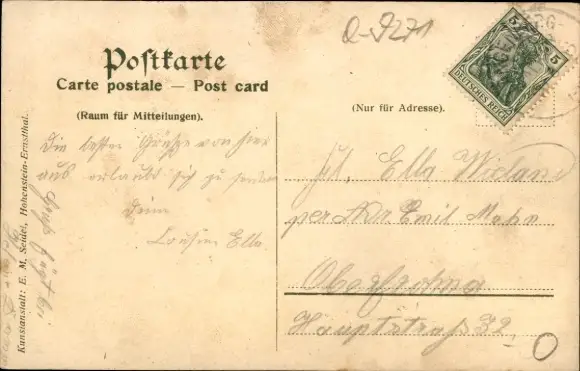 Q-9271
Postkarte
Carte postale — Post card
(Raum für Mitteilungen).
(Nur für Adresse).
5 5
DEUTSCHES REICH
Die besten Grüße von hier
aus erlaubt sich zu senden
Deine
Cousine Ella.
Frl. Ella Wieland
per Adr Emil Mehn
Oberfrohna
Hauptstraß 32.
Kunstanstalt: E. M. Seidel, Hohenstein-Ernstthal.